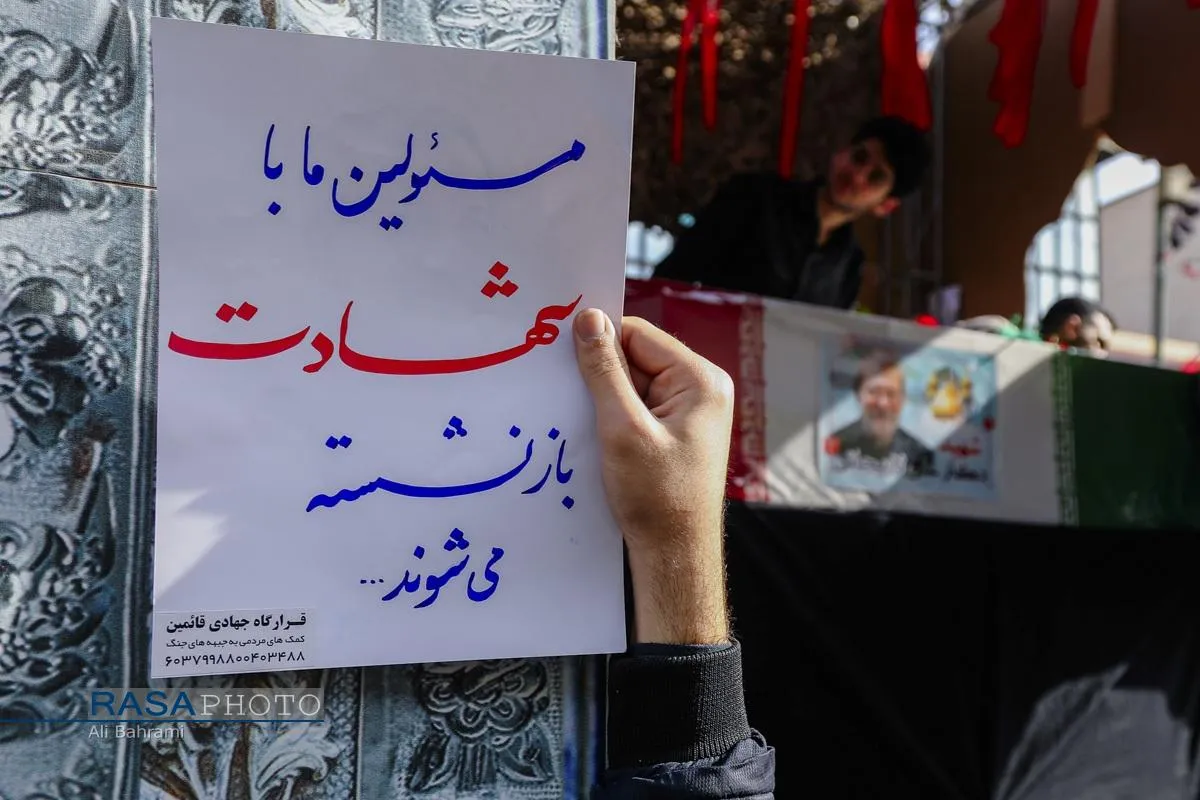 مسئولین ما با
شهادت
بازنشسته
می‌شوند...
قرارگاه جهادی قائمین
کمک های مردمی به جبهه های جنگ
۶۰۳۷۹۹۸۸۰۰۴۰۳۴۸۸
RASAPHOTO
Ali Bahrami
شهید